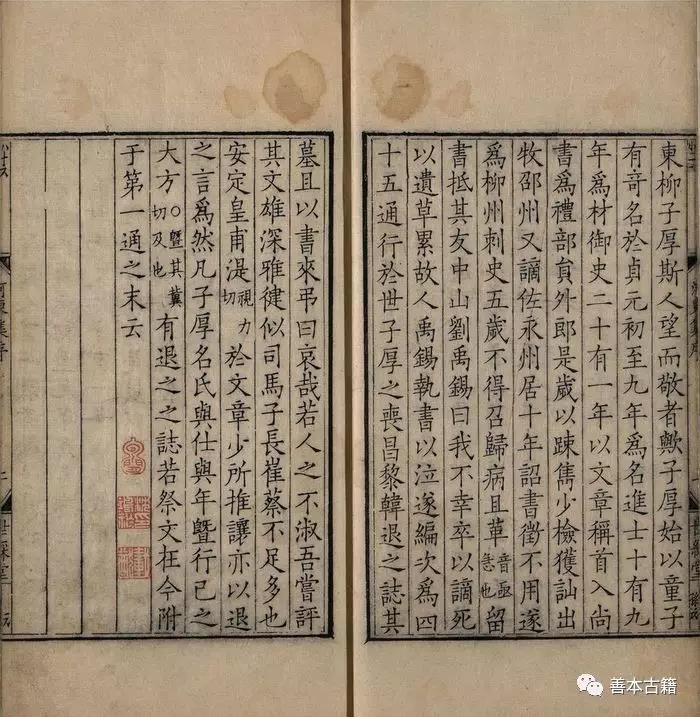 東柳子厚斯人望而敬者歟子厚始以童子
有奇名於貞元初至九年為名進士十有九
年為材御史二十有一年以文章稱首入尚
書為禮部員外郎是歲以踈雋少檢獲訕出
牧邵州又謫佐永州居十年詔書徵不用遂
為柳州刺史五歲不得召歸病且革音亟急也留
書抵其友中山劉禹錫曰我不幸卒以謫死
以遺草累故人禹錫執書以泣遂編次為四
十五通行於世子厚之喪昌黎韓退之誌其
墓且以書來弔曰哀哉若人之不淑吾嘗評
其文雄深雅健似司馬子長崔蔡不足多也
安定皇甫湜視力切於文章少所推讓亦以退
之言為然凡子厚名氏與仕與年暨行己之
大方○暨其冀切及也有退之之誌若祭文在今附
于第一通之末云
河東集序
世綵堂
善本古籍